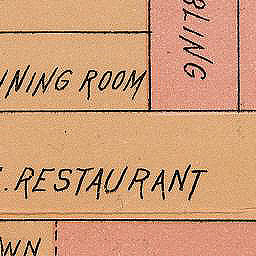 NING ROOM
BLING
. RESTAURANT
WN